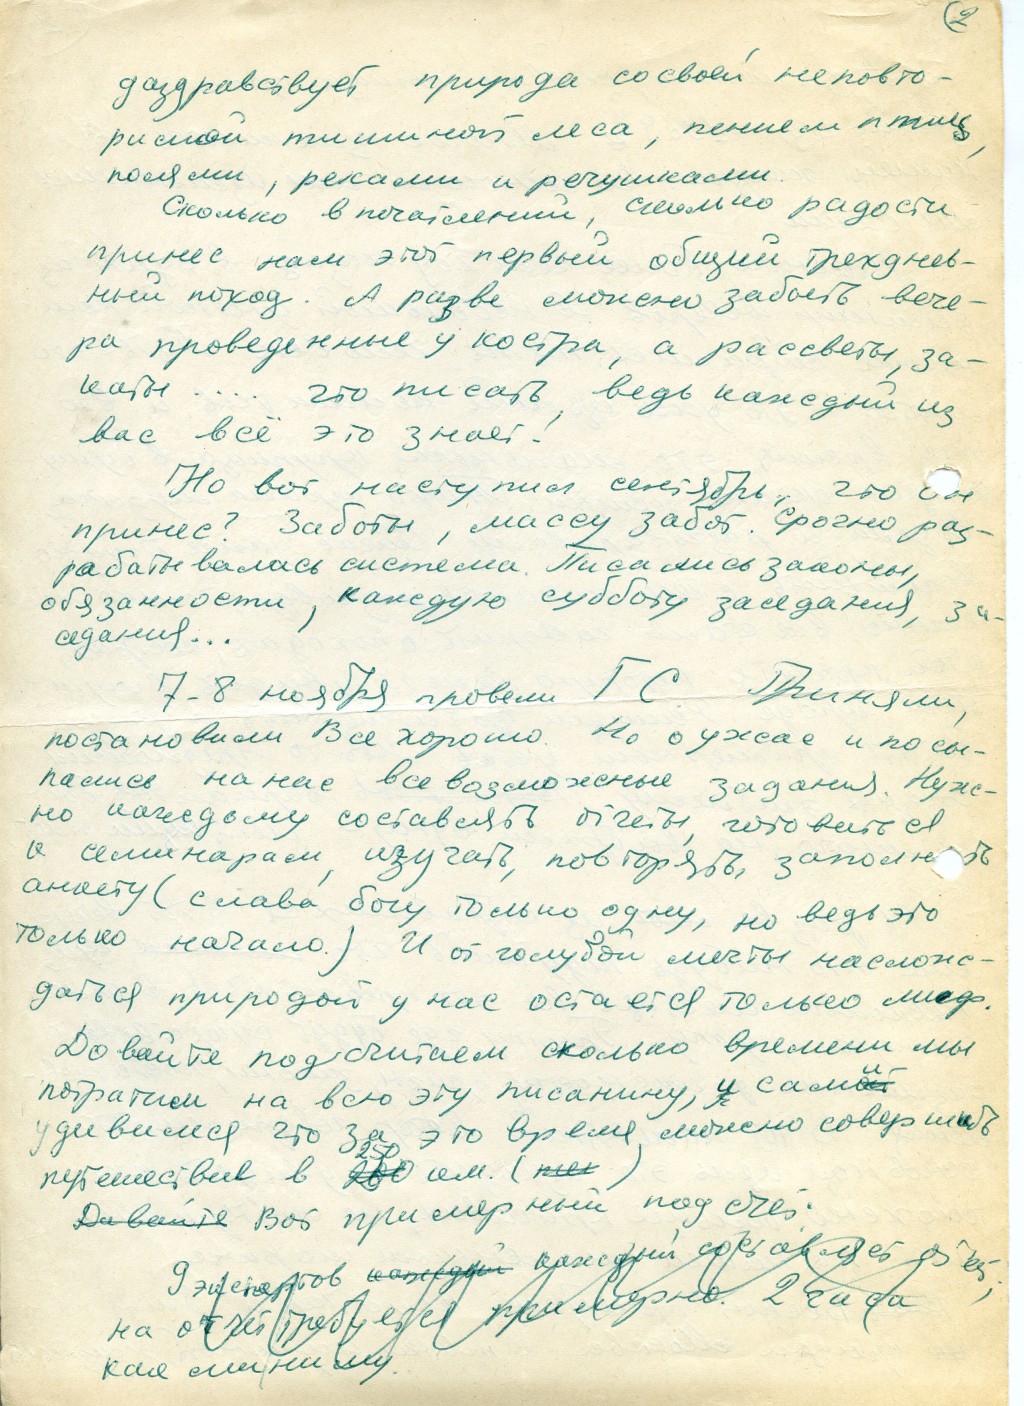 2
даздравствует природа со своей неповто-
римой тишиной леса, пением птиц,
полями, реками и речушками.
Сколько впечатлений, сколько радости
принес нам этот первый общий трехднев-
ный поход. А разве можно забыть вече-
ра проведенные у костра, а рассветы, за-
каты .... что писать, ведь каждый из
вас всё это знает!
Но вот наступил сентябрь, что он
принес? Заботы, массу забот. Срочно раз-
рабатывалась система. Писались законы,
обязанности, каждую субботу заседания, за-
седания...
7-8 ноября провели ГС. Приняли,
постановили Все хорошо. Но о ужас и посы-
пались на нас всевозможные задания. Нуж-
но каждому составлять отчеты, готовиться
к семинарам, изучать, повторять, заполнять
анкету (слава богу только одну, но ведь это
только начало.) И от голубой мечты наслаж-
даться природой у нас остается только миф.
Давайте подсчитаем сколько времени мы
потратили на всю эту писанину, и сами
удивимся что за это время можно совершить
путешествие в 250 км. ( )
Давайте Вот примерный подсчет.
9 экспертов каждый каждый составляет отчет,
на отчет требуется примерно 2 часа
как минимум.